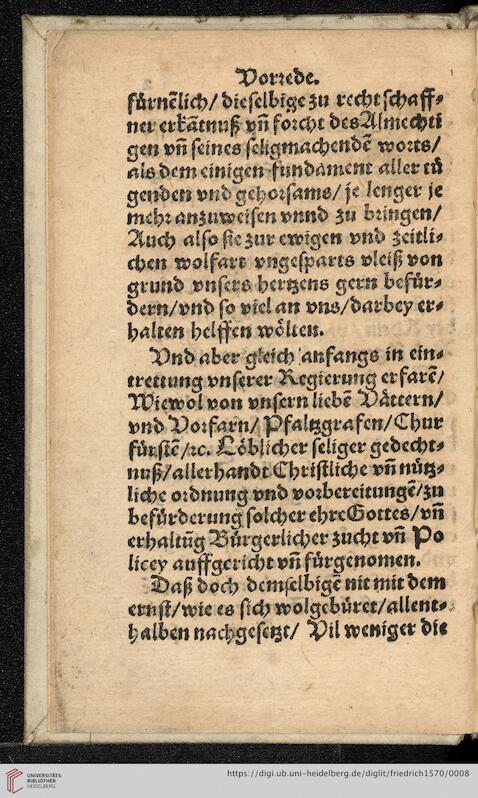 Vorrede.
fürnẽlich/ dieselbige zu recht schaff⸗
ner erkãtnuß vñ forcht des Almechti
gen vñ seines seligmachendẽ worts/
als dem einigen fundament aller tů
genden vnd gehorsams/ je lenger je
mehr anzuweisen vnnd zu bringen/
Auch also sie zur ewigen vnd zeitli⸗
chen wolfart vngesparts vleiß von
grund vnsers hertzens gern befür⸗
dern/ vnd so viel an vns/ darbey er⸗
halten helffen wölten.
Vnd aber gleich anfangs in ein⸗
trettung vnserer Regierung erfarẽ/
Wiewol von vnsern liebẽ Vättern/
vnd Vorfarn/ Pfaltzgrafen/ Chur
fürstẽ/ ꝛc. Löblicher seliger gedecht⸗
nuß/ allerhandt Christliche vñ nütz⸗
liche ordnung vnd vorbereitungẽ/ zu
befürderung solcher ehre Gottes/ vñ
erhaltũg Bürgerlicher zucht vñ Po
licey auffgericht vñ fürgenomen.
Daß doch demselbigẽ nit mit dem
ernst/ wie es sich wolgebüret/ allent⸗
halben nachgesetzt/ Vil weniger die
UNIVERSITÄTS-
BIBLIOTHEK
HEIDELBERG
https://digi.ub.uni-heidelberg.de/diglit/friedrich1570/0008